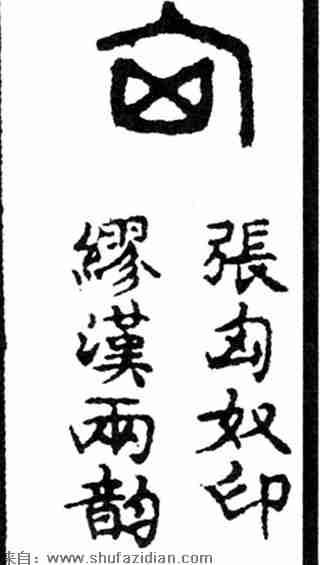 匈
張匈奴印
繆漢兩韵
来自：www.shufazidian.com